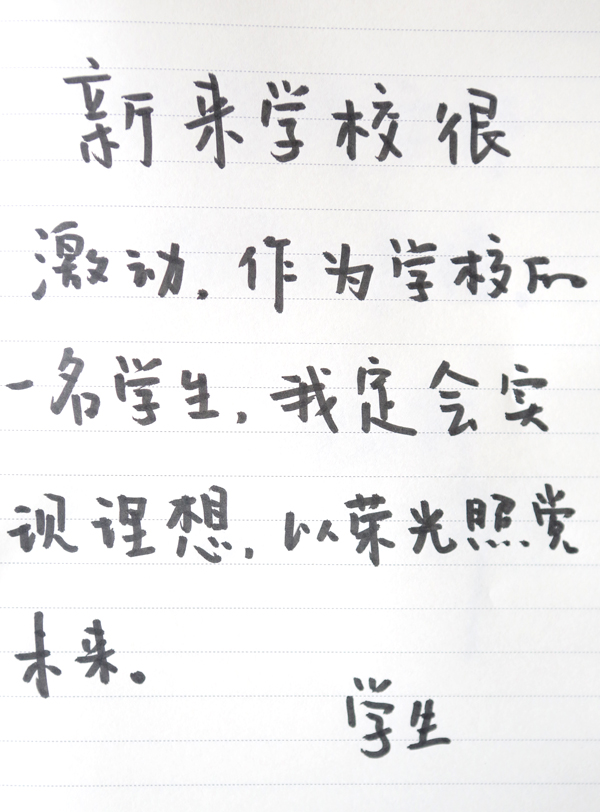 新来学校很
激动,作为学校的
一名学生,我定会实
现理想,以荣光照党
未来。
学生